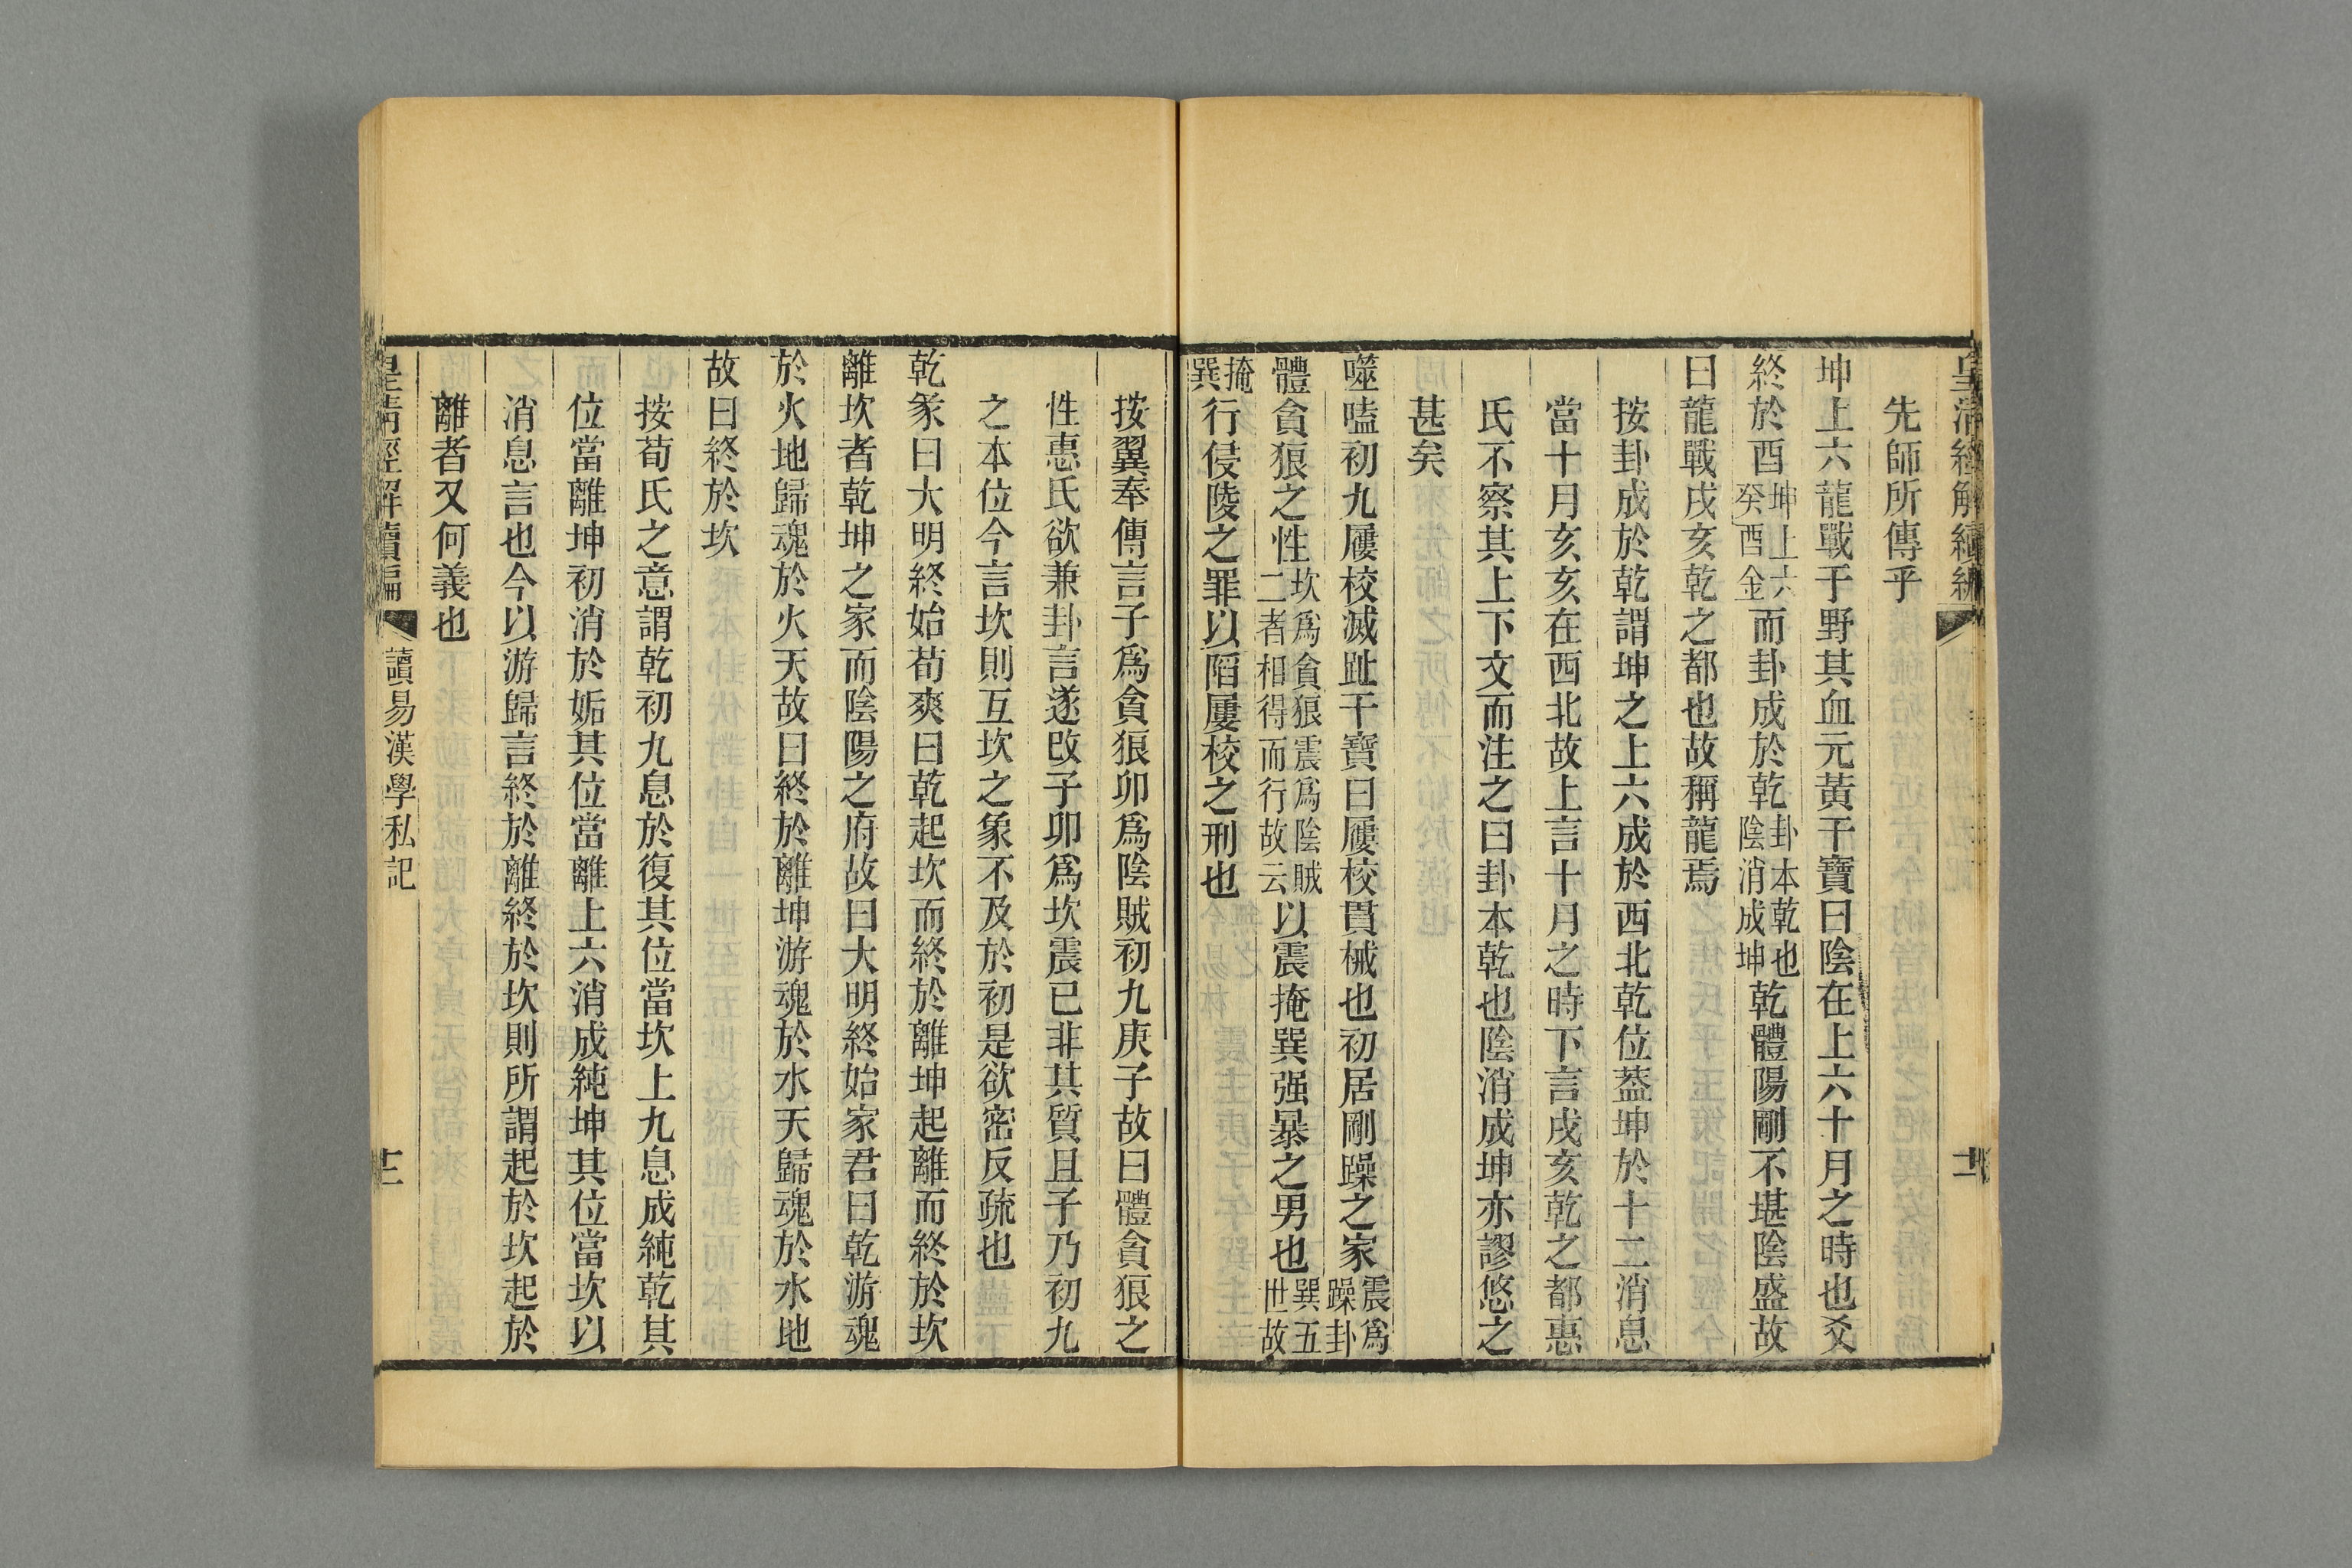 皇清經解續編
十一
先師所傳乎
坤上六龍戰于野其血元黃干寶曰陰在上六十月之時也爻
終於酉坤上六癸酉金而卦成於乾卦本乾也陰消成坤乾體陽剛不堪陰盛故
曰龍戰戌亥乾之都也故稱龍焉
按卦成於乾謂坤之上六成於西北乾位葢坤於十二消息
當十月亥亥在西北故上言十月之時下言戌亥乾之都惠
氏不察其上下文而注之曰卦本乾也陰消成坤亦謬悠之
甚矣
噬嗑初九屨校滅趾干寶曰屨校貫械也初居剛躁之家震爲躁卦
體貪狼之性坎爲貪狼震爲陰賊二者相得而行故云以震掩巽强暴之男也巽五世故
掩巽行侵陵之罪以陷屨校之刑也
按翼奉傳言子爲貪狼卯爲陰賊初九庚子故曰體貪狼之
性惠氏欲兼卦言遂改子卯爲坎震已非其質且子乃初九
之本位今言坎則互坎之象不及於初是欲密反疏也
乾彖曰大明終始荀爽曰乾起坎而終於離坤起離而終於坎
離坎者乾坤之家而陰陽之府故曰大明終始家君曰乾游魂
於火地歸魂於火天故曰終於離坤游魂於水天歸魂於水地
故曰終於坎
按荀氏之意謂乾初九息於復其位當坎上九息成純乾其
位當離坤初消於姤其位當離上六消成純坤其位當坎以
消息言也今以游歸言終於離終於坎則所謂起於坎起於
離者又何義也
皇清經解續編
讀易漢學私記
十二